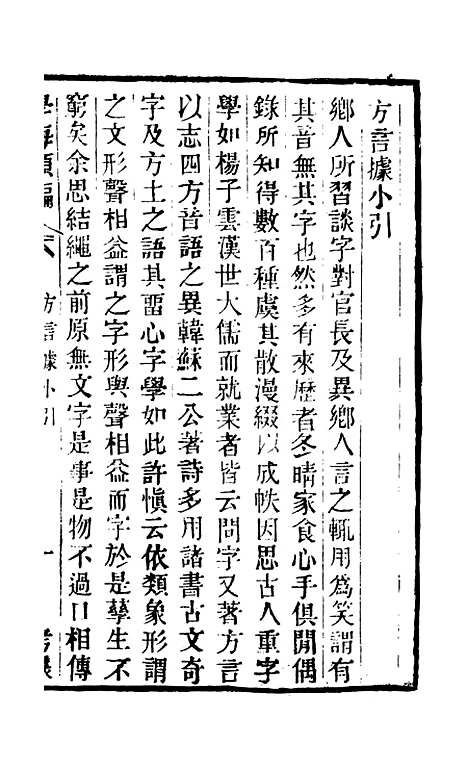 方言據小引
鄉人所習談字對官長及異鄉人言之輒用為笑謂有
其音無其字也然多有來歷者冬晴家食心手俱閒偶
錄所知得數百種虞其散漫綴以成帙因思古人重字
學如楊子雲漢世大儒而就業者皆云問字又著方言
以志四方音語之異韓蘇二公著詩多用諸書古文奇
字及方土之語其畱心字學如此許慎云依類象形謂
之文形聲相益謂之字形與聲相益而字於是孳生不
窮矣余思結繩之前原無文字是事是物不過口相傳
學海類編 方言據小引 一